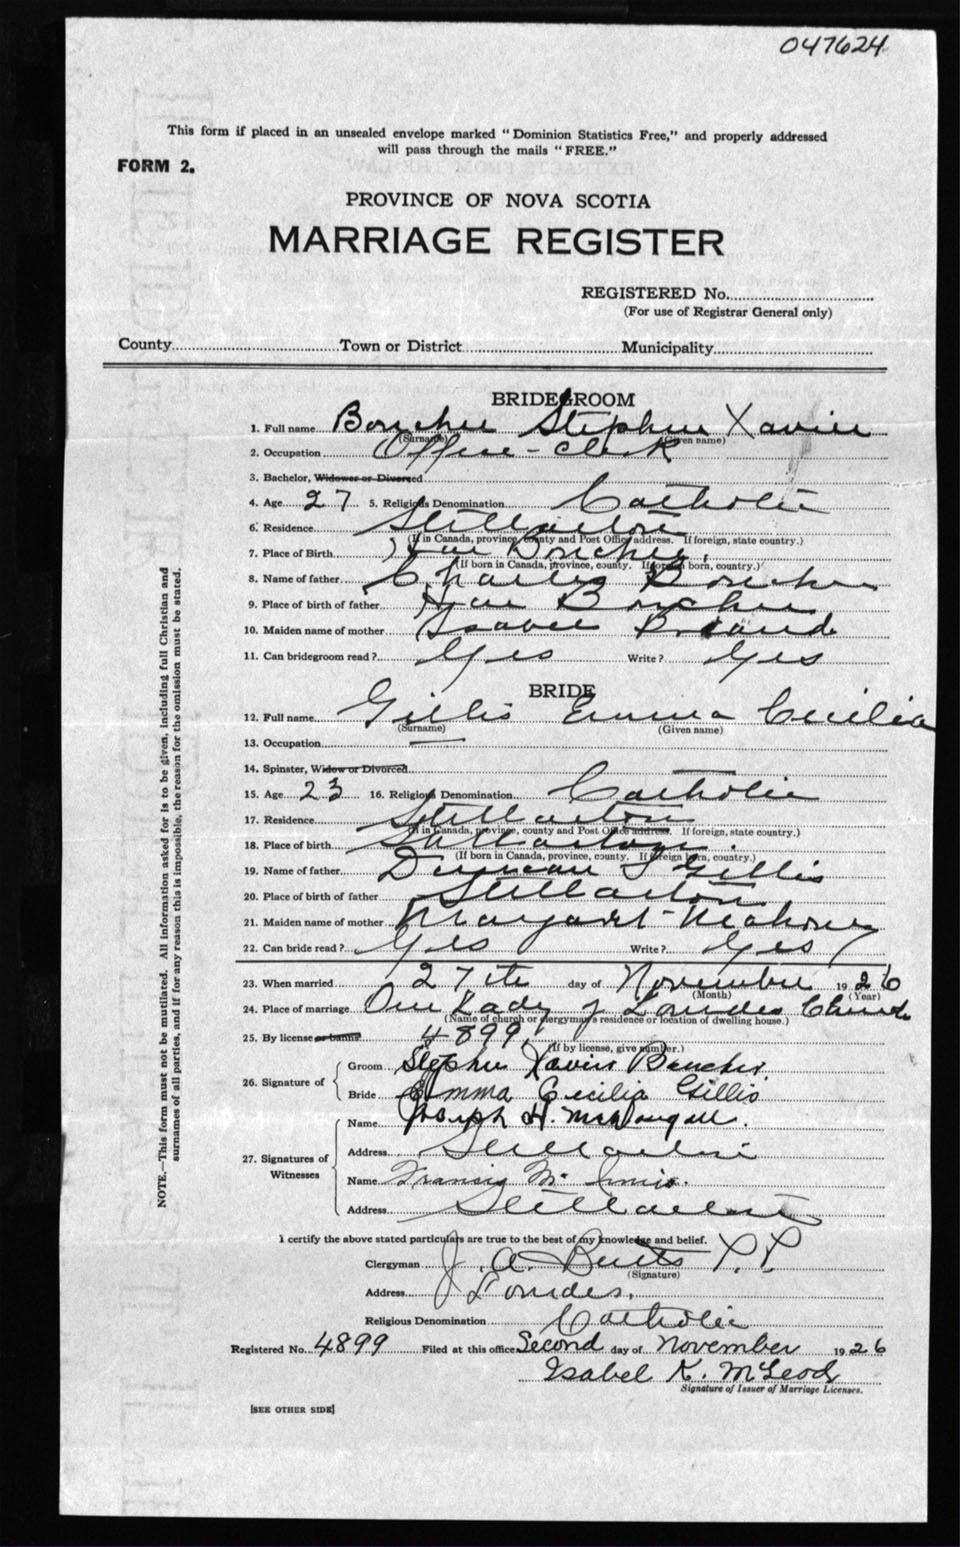 047624
This form if placed in an unsealed envelope marked “Dominion Statistics Free,” and properly addressed
will pass through the mails “FREE.”
FORM 2.
PROVINCE OF NOVA SCOTIA
MARRIAGE REGISTER
REGISTERED No.
(For use of Registrar General only)
County Town or District Municipality
BRIDEGROOM
1. Full name Boucher Stephen Xavier
(Surname) (Given name)
2. Occupation Office-Clerk
3. Bachelor, Widower or Divorced
4. Age 27 5. Religious Denomination Catholic
6. Residence Stellarton
(If in Canada, province, county and Post Office address. If foreign, state country.)
7. Place of Birth Havre Boucher,
(If born in Canada, province, county. If foreign born, country.)
8. Name of father Charles Boucher
9. Place of birth of father Havre Boucher
10. Maiden name of mother
11. Can bridegroom read? Yes Write? Yes
BRIDE
12. Full name Gillis Emma Cecilia
(Surname) (Given name)
13. Occupation —
14. Spinster, Widow or Divorced
15. Age 23 16. Religious Denomination Catholic
17. Residence Stellarton
(If in Canada, province, county and Post Office address. If foreign, state country.)
18. Place of birth Stellarton.
(If born in Canada, province, county. If foreign born, country.)
19. Name of father Duncan Gillis
20. Place of birth of father Stellarton
21. Maiden name of mother Margaret Mahoney
22. Can bride read? Yes Write? Yes
23. When married 27th day of November 1926
(Month) (Year)
24. Place of marriage Our Lady of Lourdes Church
(Name of church or clergyman's residence or location of dwelling house.)
25. By license or banns 4899
(If by license, give number.)
26. Signature of
Groom Stephen Xavier Boucher
Bride Emma Cecilia Gillis
27. Signatures of Witnesses
Name Joseph H. McDougall.
Address Stellarton
Name Francis McInnis.
Address Stellarton
I certify the above stated particulars are true to the best of my knowledge and belief.
Clergyman J. A. Butts P.P.
(Signature)
Address Lourdes.
Religious Denomination Catholic
Registered No. 4899 Filed at this office Second day of November 1926
Isabel K. McLeod
Signature of Issuer of Marriage Licenses.
[SEE OTHER SIDE]
NOTE.—This form must not be mutilated. All information asked for is to be given, including full Christian and
surnames of all parties, and if for any reason this is impossible, the reason for the omission must be stated.